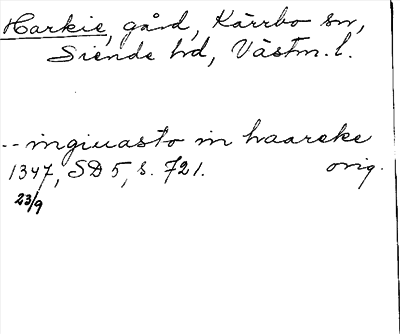 Harkie, gård, Kärrbo sn,
Siende hd, Västm. l.
-- ingiuasto in haareke
1347, SD 5, s. 721. orig.
23/9